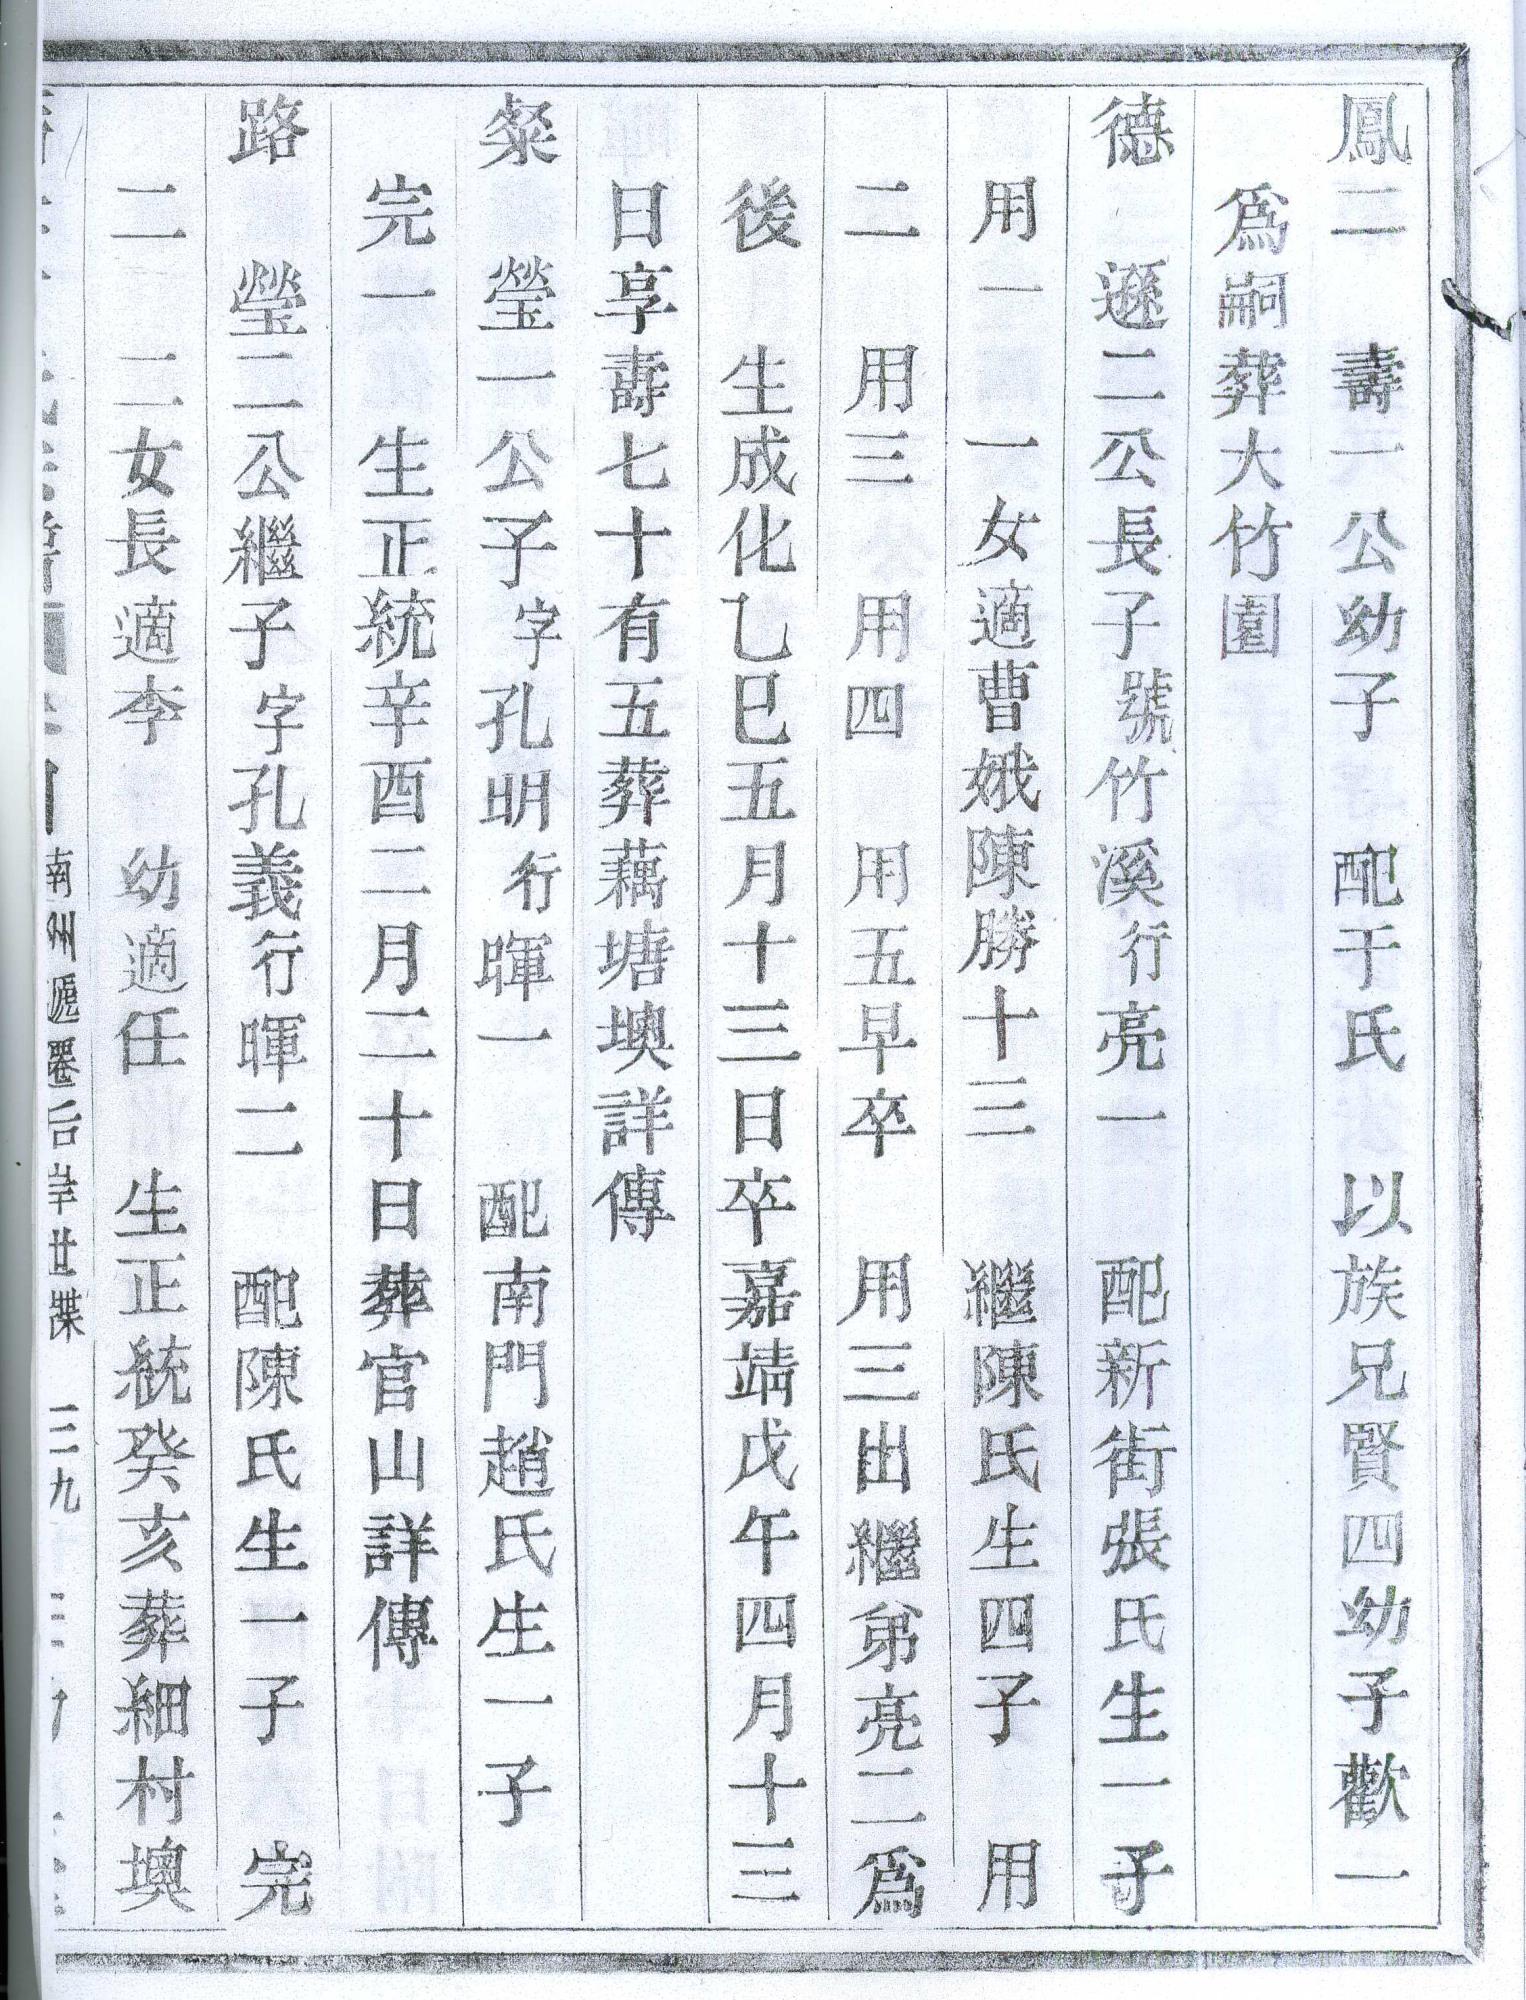 鳳二　壽一公幼子　配于氏　以族兄賢四幼子歡一
爲嗣葬大竹園
德　遜二公長子號竹溪行亮一　配新街張氏生一子
用一　一女適曹娥陳勝十三　繼陳氏生四子　用
二　用三　用四　用五早卒　用三出繼弟亮二爲
後　生成化乙巳五月十三日卒嘉靖戊午四月十三
日享壽七十有五葬藕塘墺詳傳
粲　瑩一公子字孔明行暉一　配南門趙氏生一子
完一　生正統辛酉二月二十日葬官山詳傳
路　瑩二公繼子字孔義行暉二　配陳氏生一子　完
二　二女長適李　幼適任　生正統癸亥葬細村墺
南州　世牒　三九